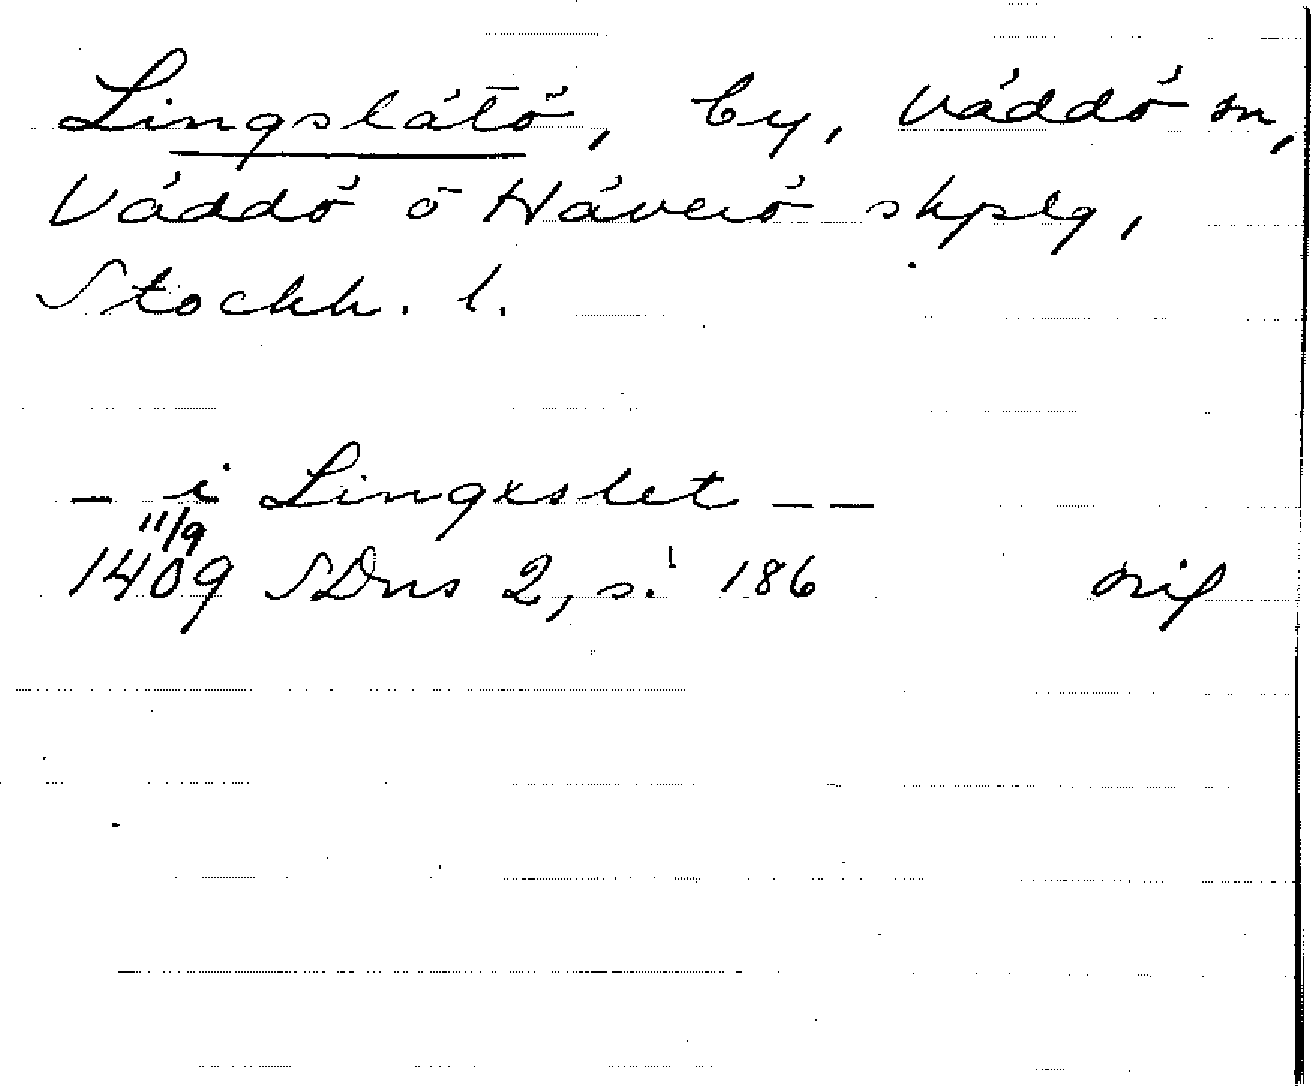 Lingslätö, by, Väddö sn,
Väddö o Häverö skplg,
Stockh. l.
— i Lingxslet — —
11/9
1409 SDns 2, s. 186